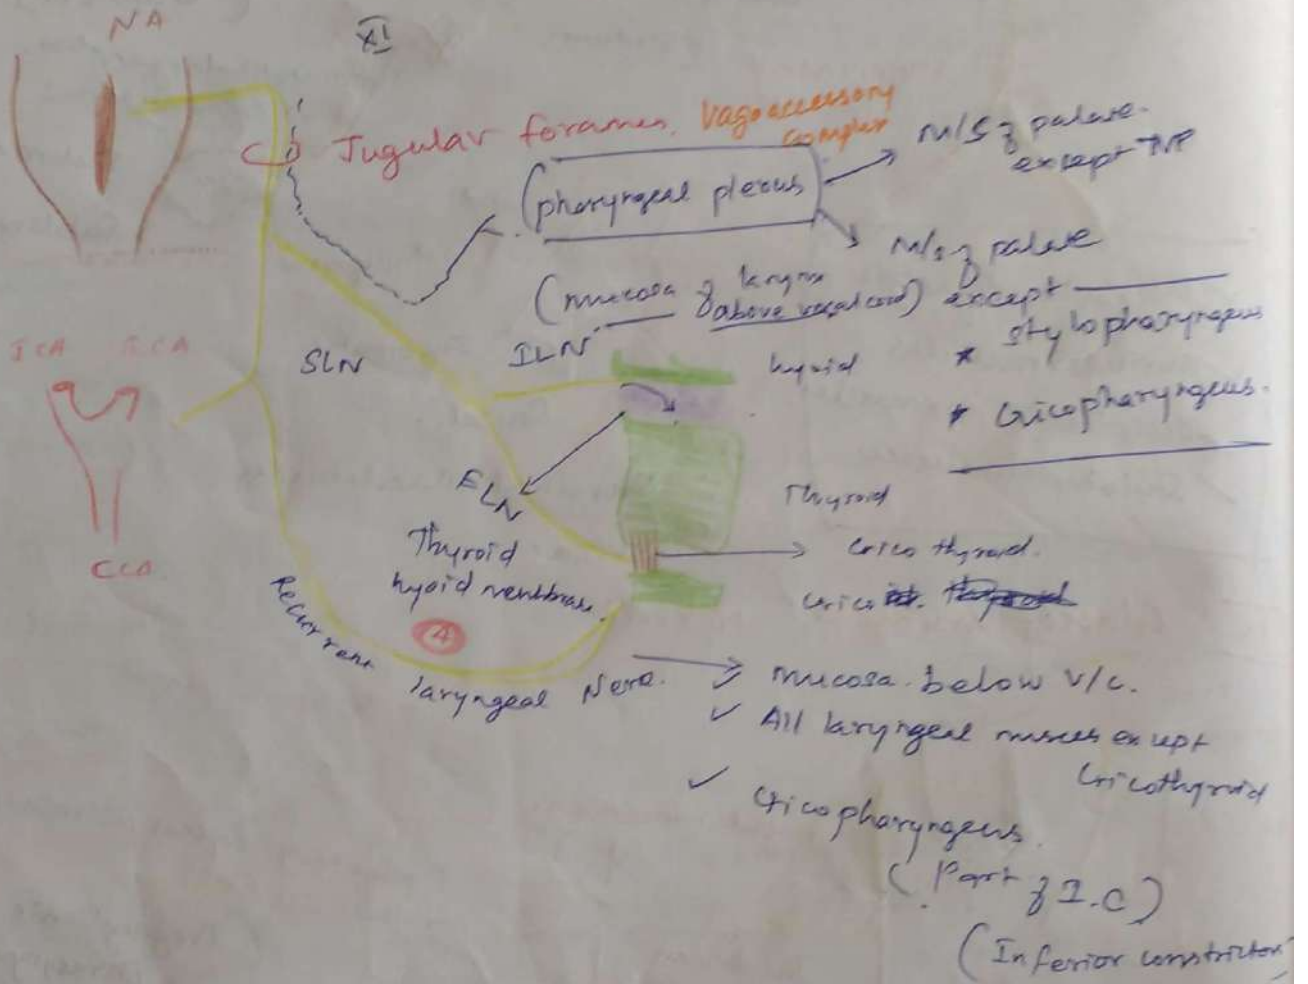 NA
XI
Jugular foramen.
Vagoaccessory
complex
(pharyngeal plexus)
m/s of palate
except TVP
m/s of palate
except
stylopharyngeus
* Cricopharyngeus.
(mucosa of larynx
above vocal cord)
ILN
SLN
ICA ECA
CCA
hyoid
ELN
Thyroid
Thyroid
hyoid membrane.
Crico thyroid.
Cricoid.
4
Recurrent
laryngeal Nerve.
mucosa below v/c.
✓ All laryngeal muscles except
Cricothyroid
✓ Cricopharyngeus.
(Part of I.C)
(Inferior constrictor